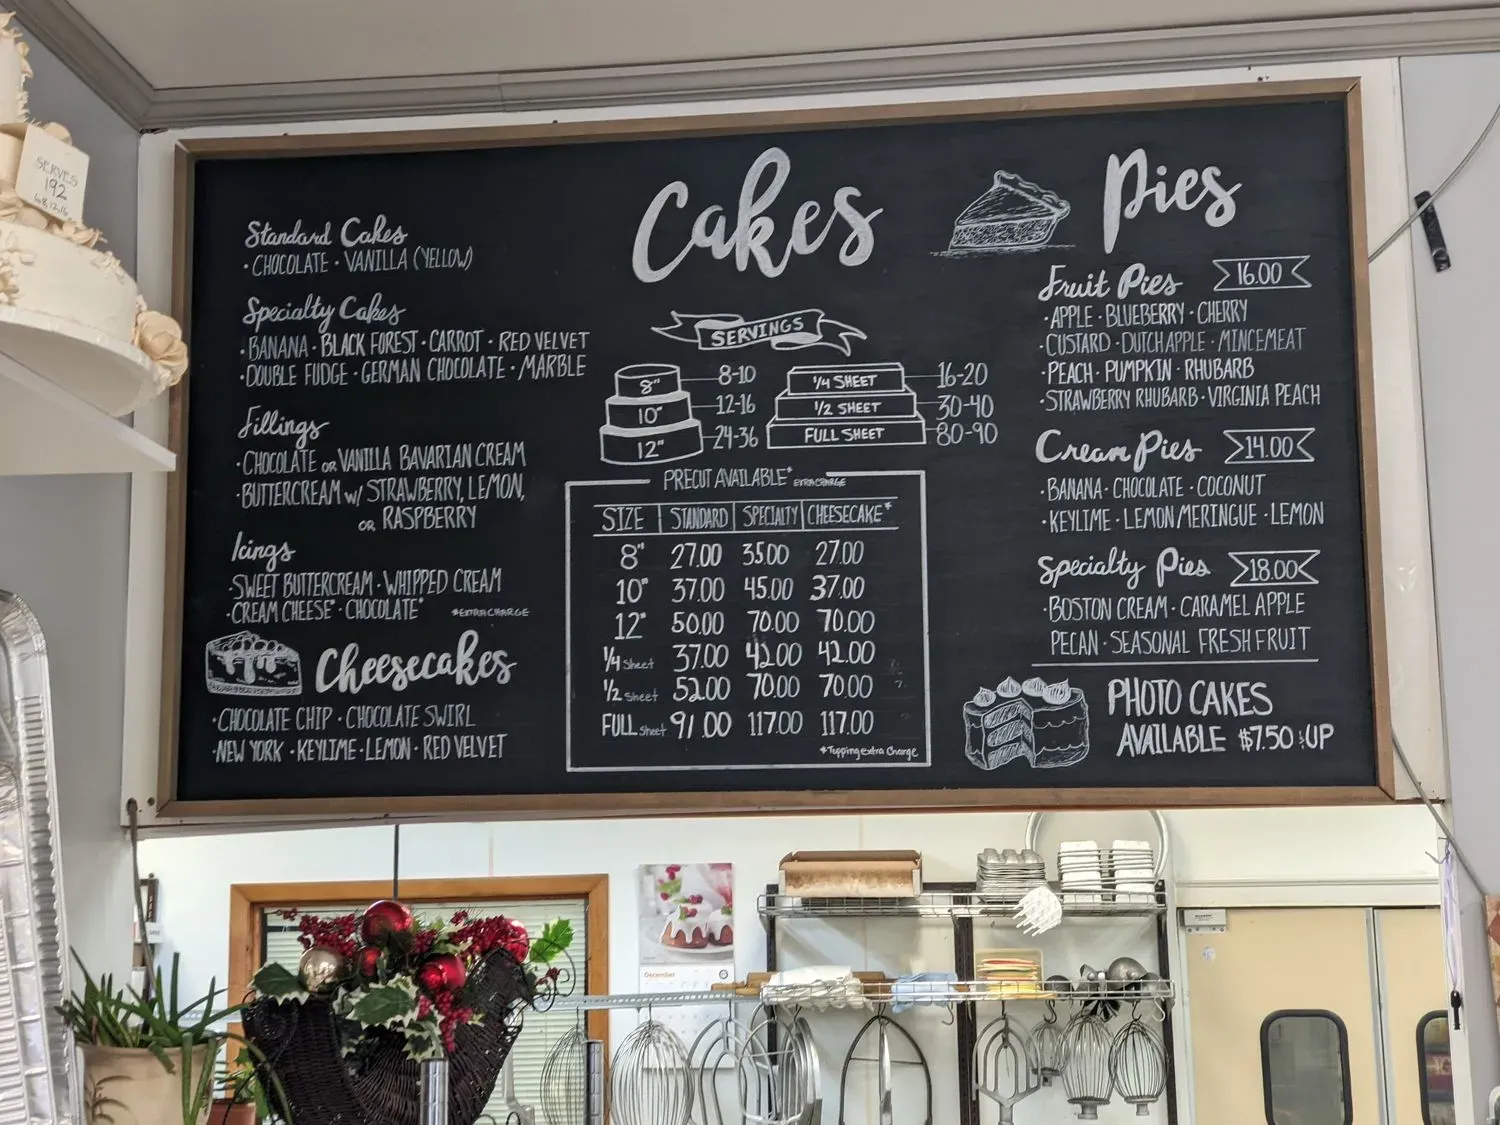 SERVES
192
Cakes
Pies
Standard Cakes
• CHOCOLATE • VANILLA (YELLOW)
Specialty Cakes
• BANANA • BLACK FOREST • CARROT • RED VELVET
• DOUBLE FUDGE • GERMAN CHOCOLATE • MARBLE
Fillings
• CHOCOLATE OR VANILLA BAVARIAN CREAM
• BUTTERCREAM W/ STRAWBERRY, LEMON,
OR RASPBERRY
Icings
• SWEET BUTTERCREAM • WHIPPED CREAM
• CREAM CHEESE* • CHOCOLATE* *EXTRA CHARGE
Cheesecakes
• CHOCOLATE CHIP • CHOCOLATE SWIRL
• NEW YORK • KEYLIME • LEMON • RED VELVET
SERVINGS
8" 8-10
10" 12-16
12" 24-36
1/4 SHEET 16-20
1/2 SHEET 30-40
FULL SHEET 80-90
PRECUT AVAILABLE* EXTRA CHARGE
SIZE STANDARD SPECIALTY CHEESECAKE*
8" 27.00 35.00 27.00
10" 37.00 45.00 37.00
12" 50.00 70.00 70.00
1/4 Sheet 37.00 42.00 42.00
1/2 Sheet 52.00 70.00 70.00
FULL Sheet 91.00 117.00 117.00
*Topping extra Charge
Fruit Pies 16.00
• APPLE • BLUEBERRY • CHERRY
• CUSTARD • DUTCH APPLE • MINCEMEAT
• PEACH • PUMPKIN • RHUBARB
• STRAWBERRY RHUBARB • VIRGINIA PEACH
Cream Pies 14.00
• BANANA • CHOCOLATE • COCONUT
• KEYLIME • LEMON MERINGUE • LEMON
Specialty Pies 18.00
• BOSTON CREAM • CARAMEL APPLE
PECAN • SEASONAL FRESH FRUIT
PHOTO CAKES
AVAILABLE $7.50 & UP
December